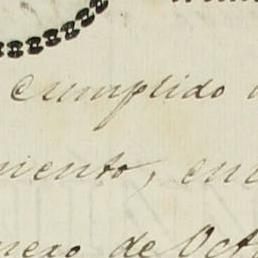 cumplido
miento, en
nero de Oct